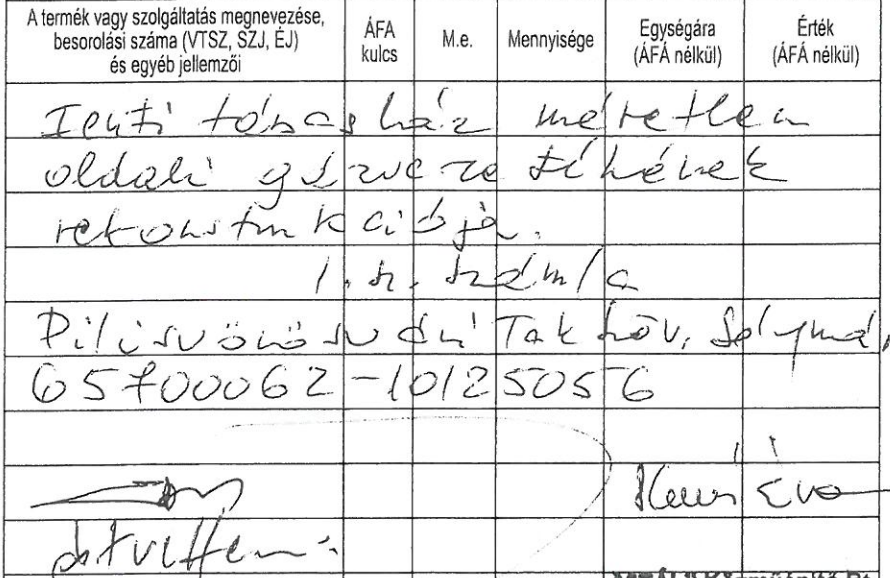 A termék vagy szolgáltatás megnevezése, besorolási száma (VTSZ, SZJ, ÉJ) és egyéb jellemzői
ÁFA kulcs
M.e.
Mennyisége
Egységára (ÁFÁ nélkül)
Érték (ÁFÁ nélkül)
Ienti társasház méretlen
oldali gázvezetékének
rekonstrukciója.
1. sz. számla
Pilisvörösvári Tak szöv, Solymár
65700062-10125056
Éva
átvettem: